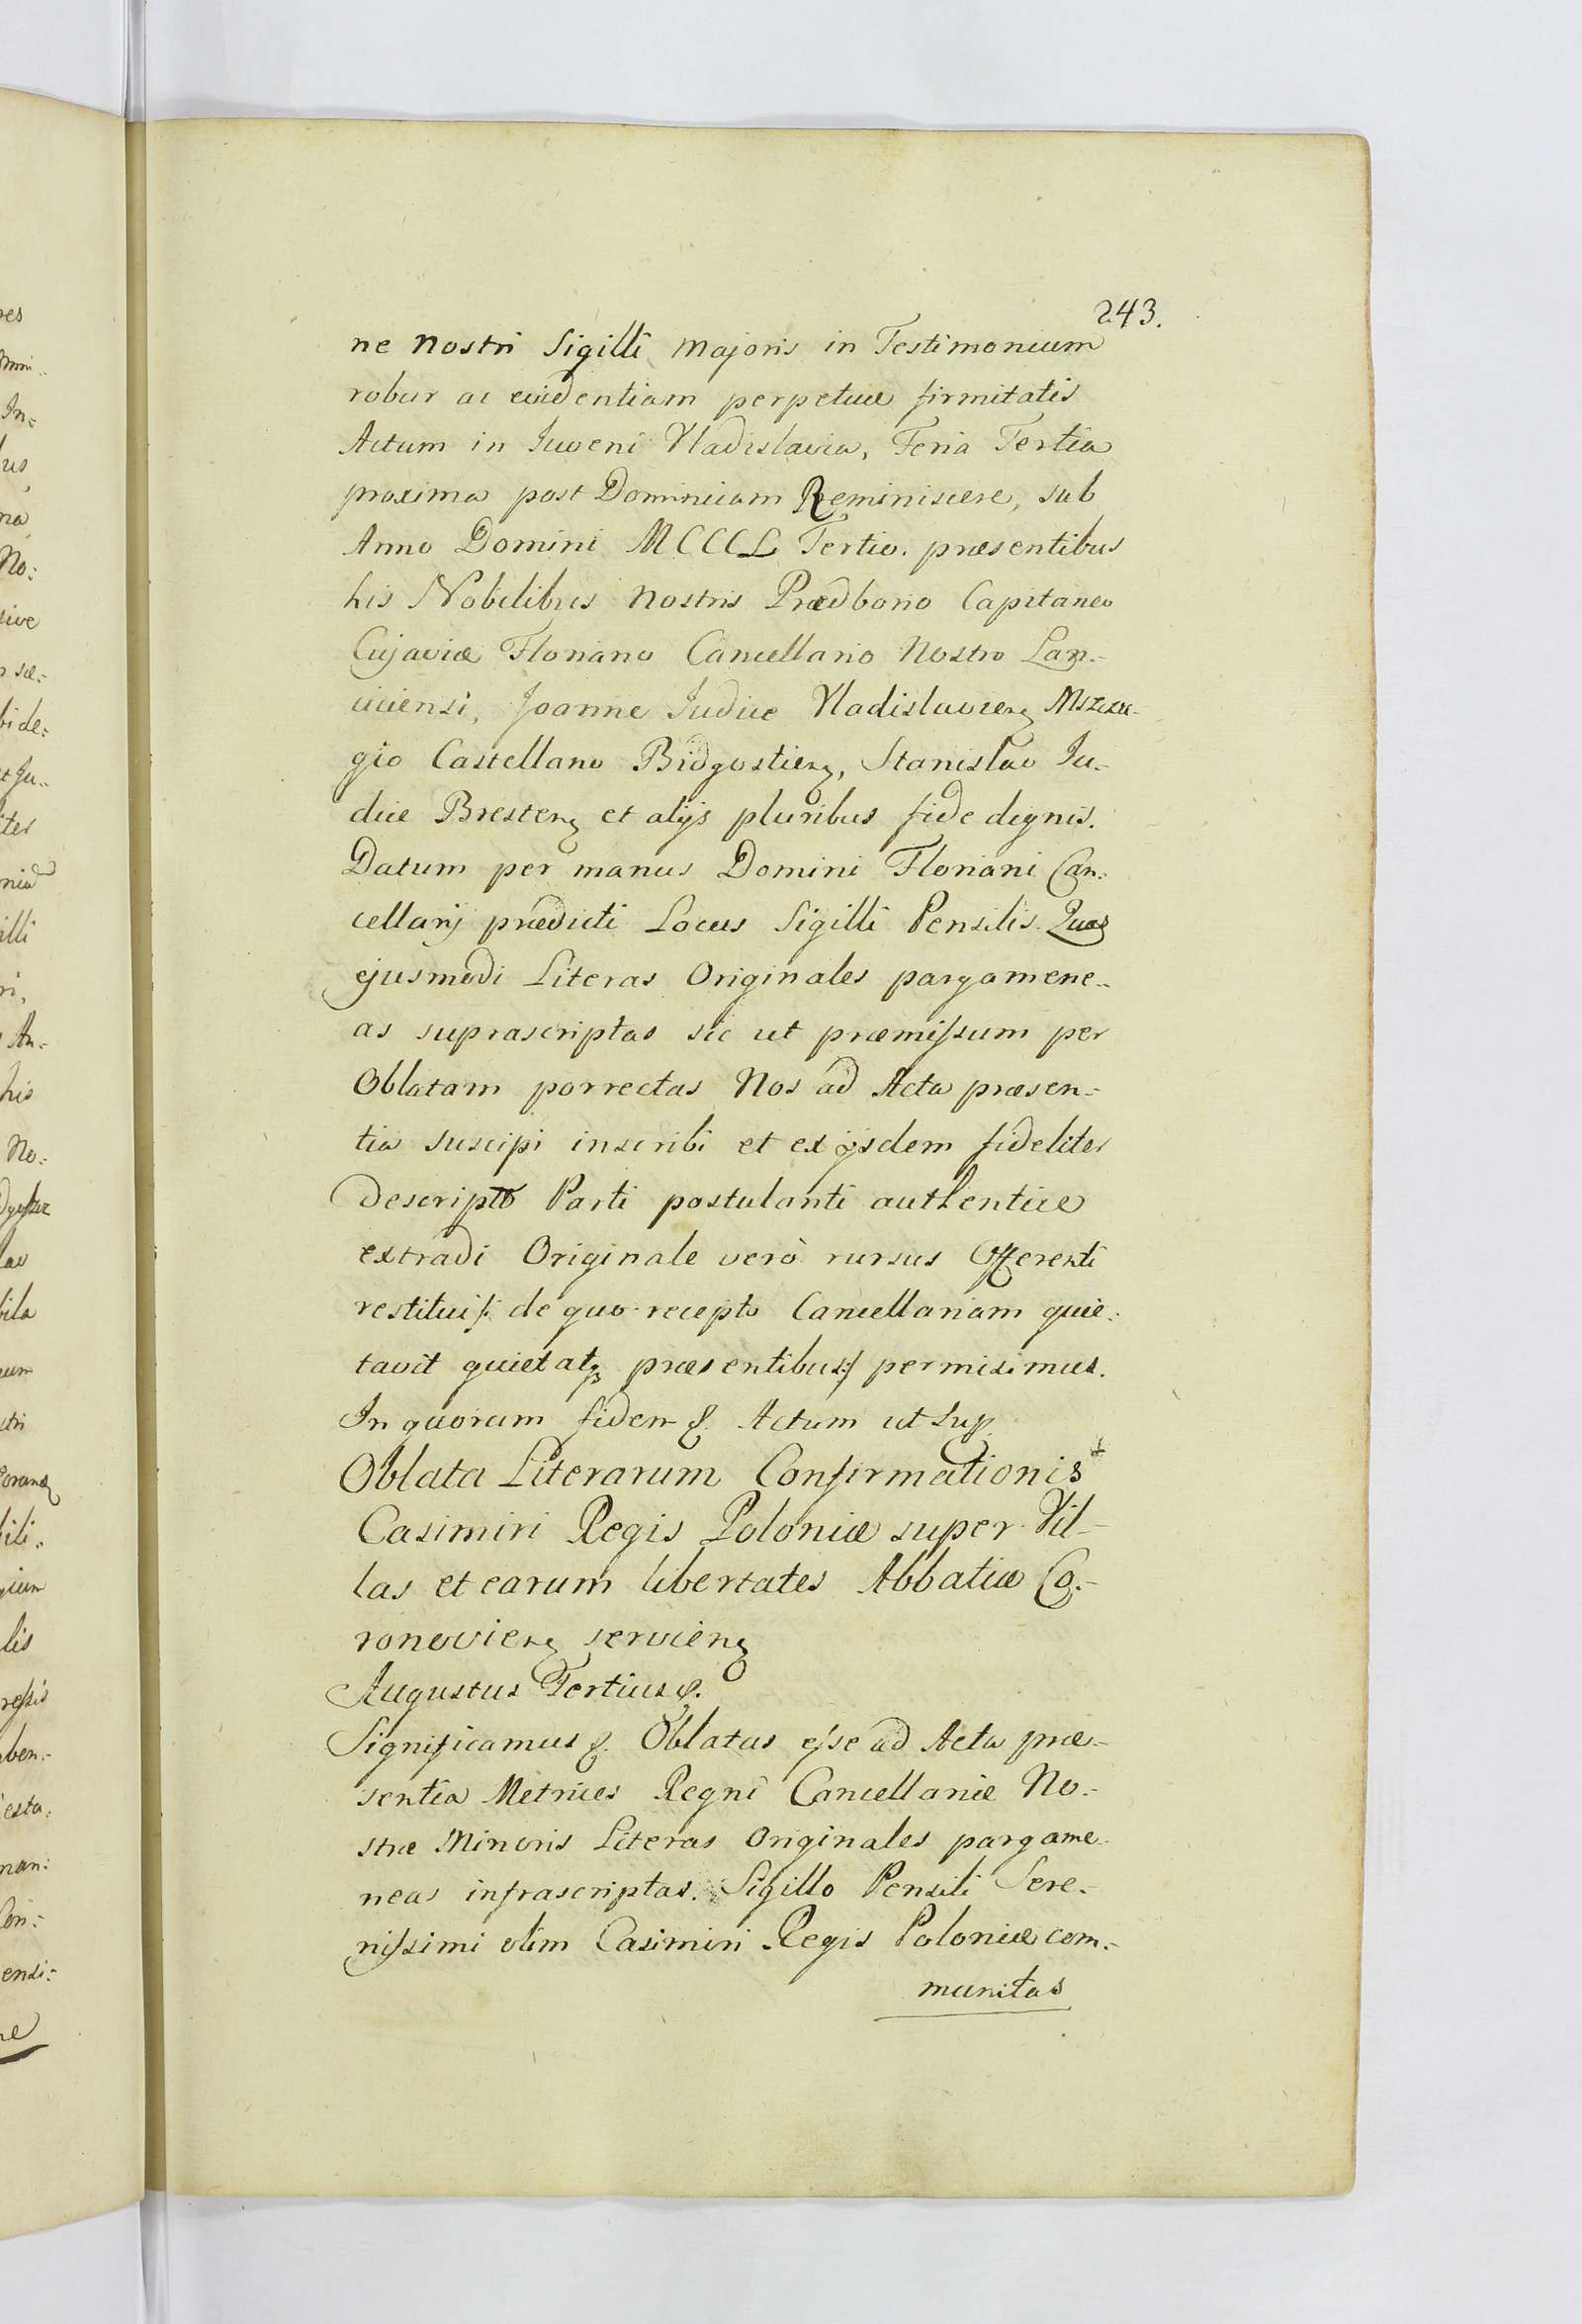 243.
ne nostri Sigilli majoris in Testimonium
robur ac evidentiam perpetuæ firmitatis
Actum in Juveni Vladislavia, Feria Tertia
proxima post Dominicam Reminiscere, sub
Anno Domini MCCCL Tertio. præsentibus
his Nobilibus nostris Prædborio Capitaneo
Cujaviæ Floriano Cancellario Nostro Lan-
ciciensi, Joanne Judice Vladislavien
gio Castellano Bidgostien, Stanislao Ju-
dice Bresten et alijs pluribus fide dignis.
Datum per manus Domini Floriani Can-
cellarij prædicti Locus Sigilli Pensilis. Quas
ejusmodi Literas Originales pargamene-
as suprascriptas sic ut præmissum per
Oblatam porrectas Nos ad Acta præsen-
tia suscipi inscribi et ex ijsdem fideliter
descripto Parti postulanti authentice
extradi Originale verò rursus Offerenti
restitui /: de quo recepto Cancellariam quie-
tavit quietatq præsentibus :/ permisimus.
In quorum fidem &. Actum ut Sup.
Oblata Literarum Confirmationis
Casimiri Regis Poloniæ super Vil-
las et earum libertates Abbatiæ Co-
ronovien servien
Augustus Tertius &.
Significamus &. Oblatas esse ad Acta præ-
sentia Metrices Regni Cancellariæ No-
stræ Minoris Literas Originales pargame-
neas infrascriptas. Sigillo Pensili Sere-
nissimi olim Casimiri Regis Poloniæ com-
munitas